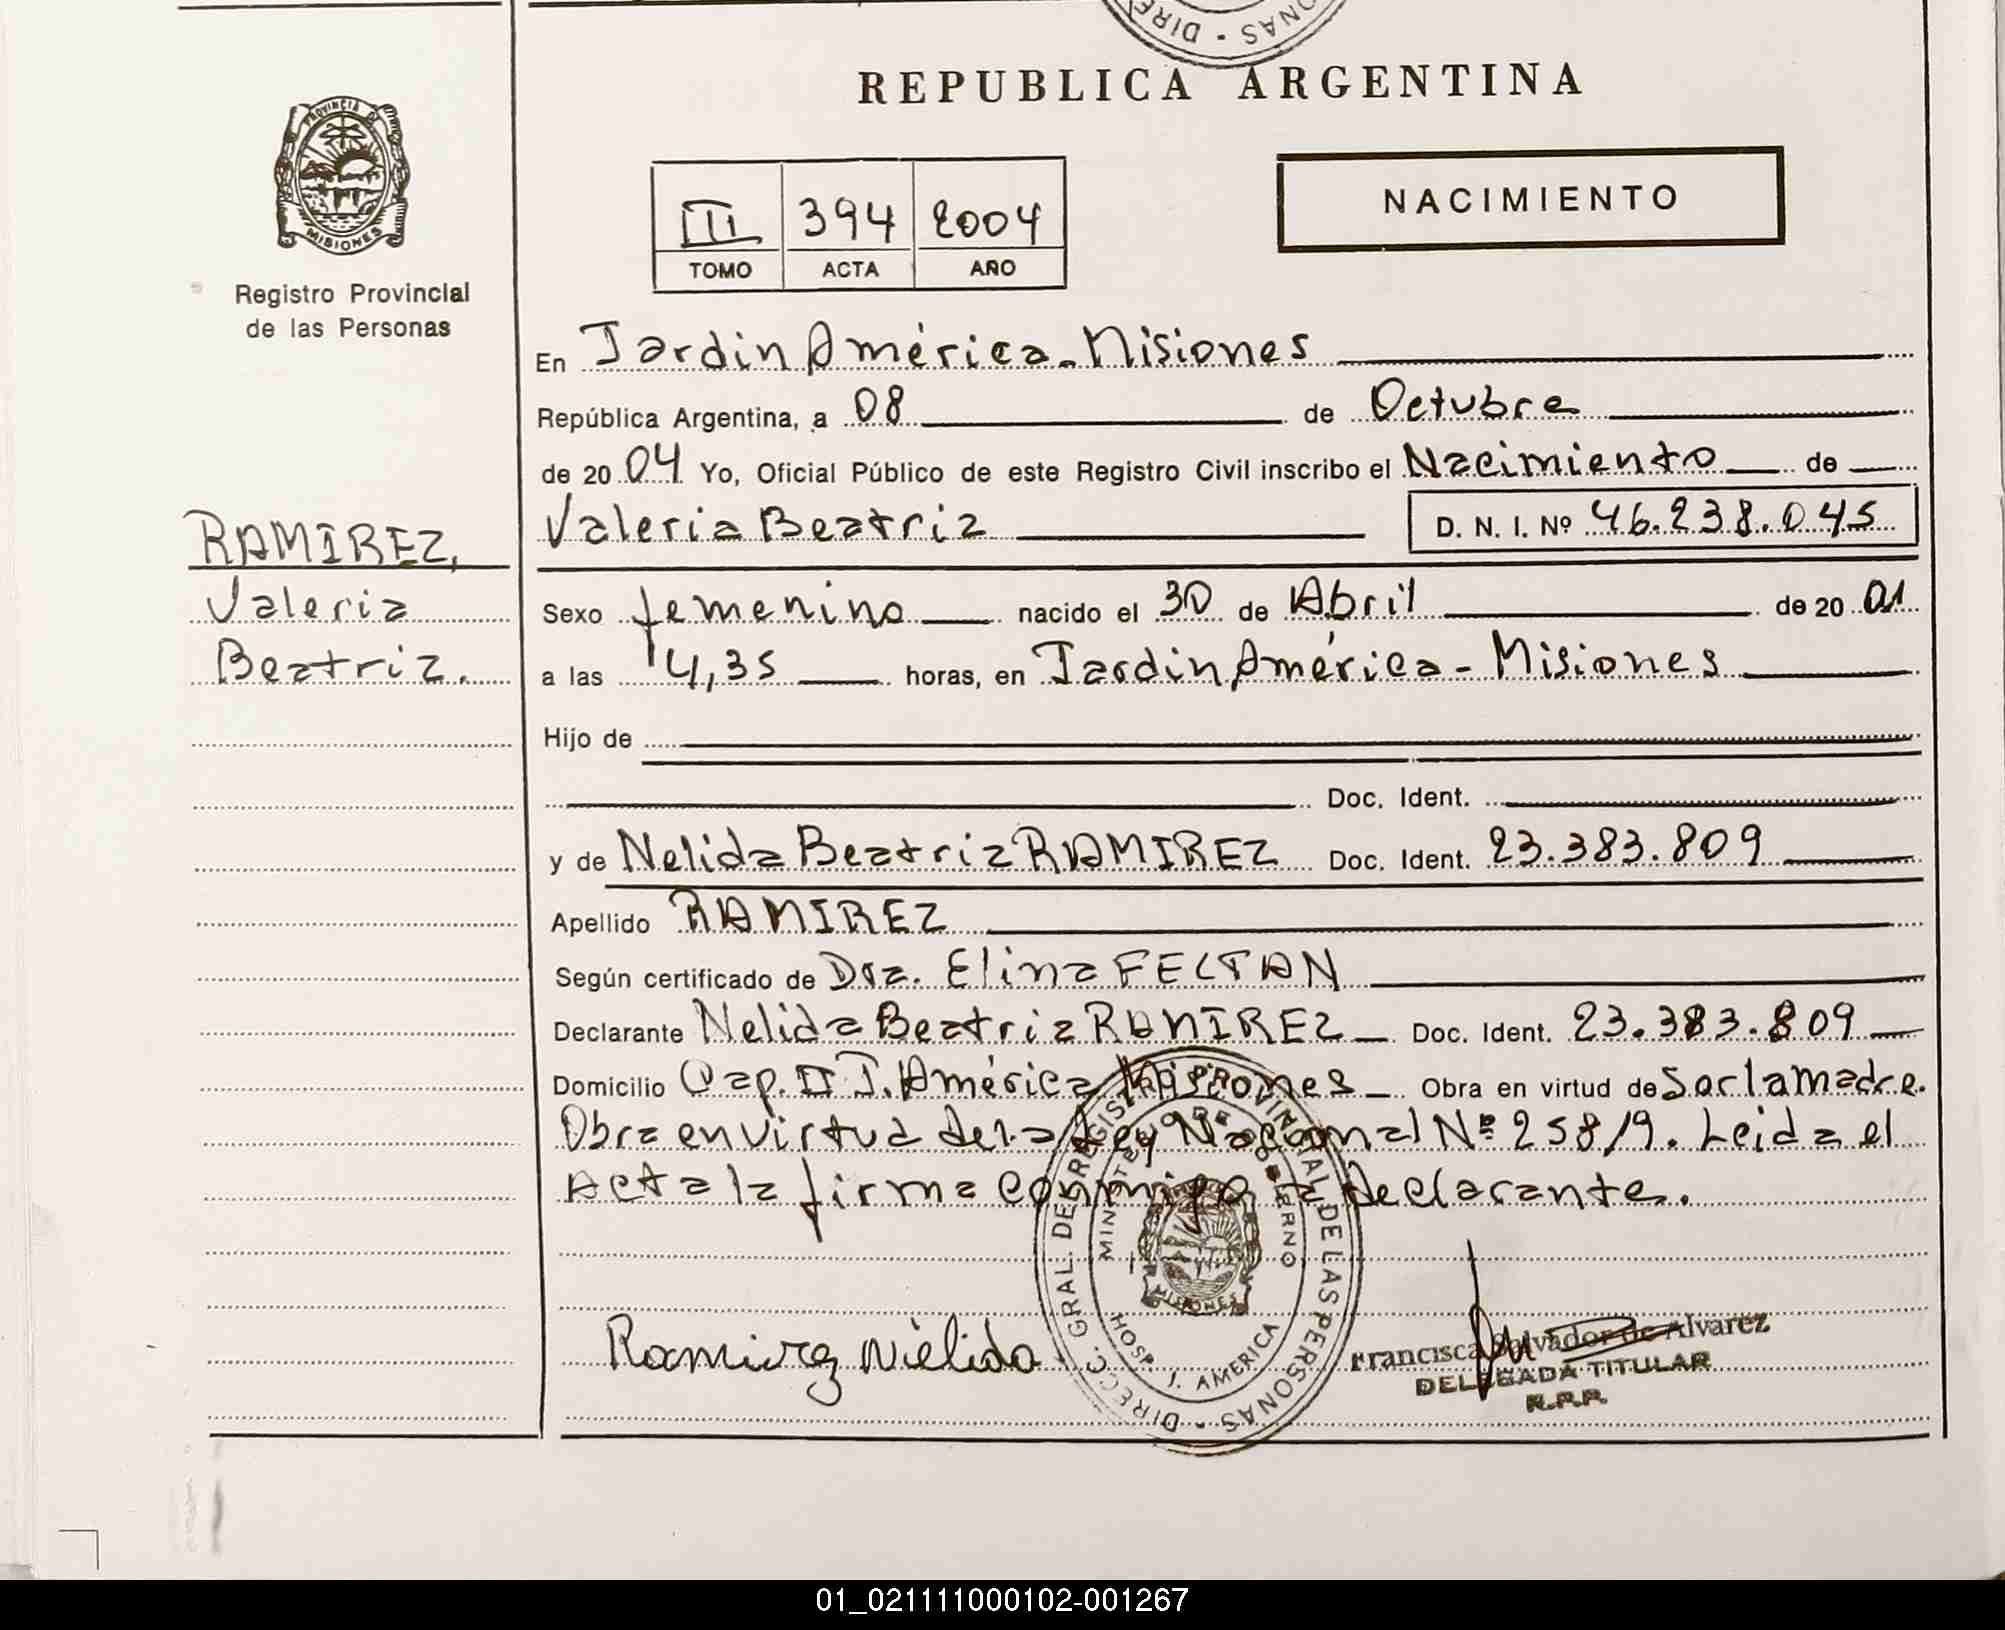 REPUBLICA ARGENTINA
PROVINCIA DE
MISIONES
Registro Provincial
de las Personas
III 394 2004
TOMO ACTA AÑO
NACIMIENTO
En Jardin América - Misiones
República Argentina, a 08 de Octubre
de 20 04 Yo, Oficial Público de este Registro Civil inscribo el Nacimiento de
Valeria Beatriz D. N. I. Nº 46.238.045
RAMIREZ,
Valeria
Beatriz.
Sexo femenino nacido el 30 de Abril de 20 01
a las 14,35 horas, en Jardin América - Misiones
Hijo de
Doc. Ident.
y de Nelida Beatriz RAMIREZ Doc. Ident. 23.383.809
Apellido RAMIREZ
Según certificado de Dra. Elina FELTAN
Declarante Nelida Beatriz RAMIREZ Doc. Ident. 23.383.809
Domicilio Cap. II J. América Misiones Obra en virtud de Ser la madre.
Obra en virtud de la Ley Nacional Nº 25819. Leida el
Acta la firma conmigo la declarante.
DIRECC. GRAL. DE REGISTRO PROVINCIAL DE LAS PERSONAS
MINISTERIO DE GOBIERNO
MISIONES
HOSP. J. AMERICA
Ramirez Nélida
Francisca Salvador de Alvarez
DELEGADA TITULAR
R.P.P.
01_021111000102-001267